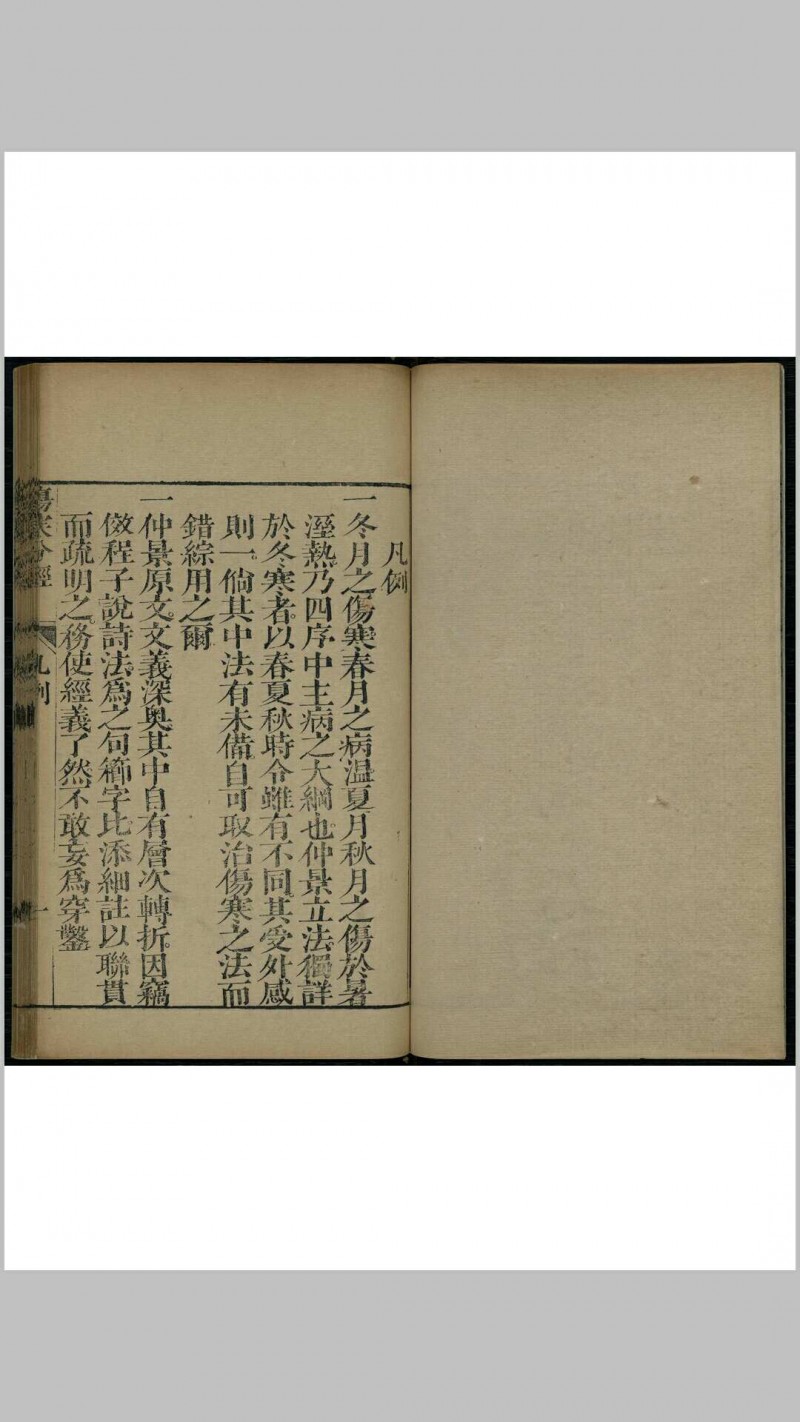 凡例
一冬月之傷寒春月之病溫夏月秋月之傷於暑
溼熱乃四序中主病之大綱也仲景立法獨詳
於冬寒者以春夏秋時令雖有不同其受外感
則一倘其中法有未備自可取治傷寒之法而
錯綜用之爾
一仲景原文文義深奧其中自有層次轉折因竊
倣程子說詩法為之句櫛字比添細註以聯貫
而疏明之務使經義了然不敢妄為穿鑿
傷寒分經 凡例 一